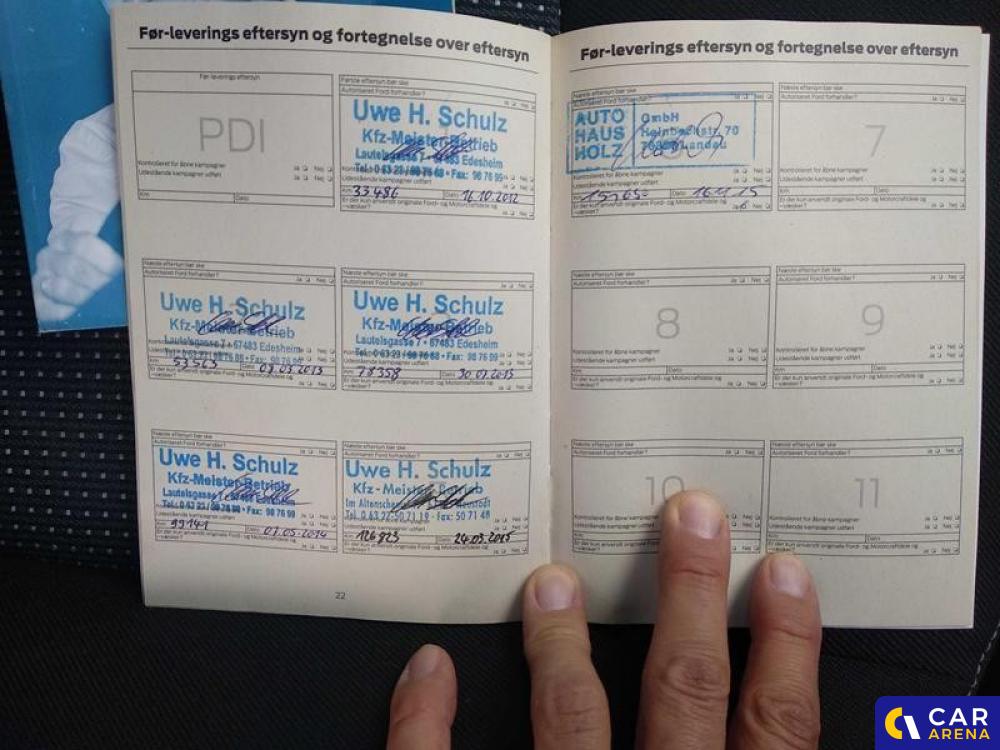 Før-leverings eftersyn og fortegnelse over eftersyn
Før-leverings eftersyn
PDI
Kontrolleret for åbne kampagner
Udestående kampagner udført
Ja Nej
Km
Dato
Første eftersyn bør ske
Autoriseret Ford forhandler?
Ja Nej
Uwe H. Schulz
Kfz-Meister-Betrieb
Lautelsgasse 7 • 67483 Edesheim
Tel.: 0 63 23 / 98 76 88 • Fax: 98 76 99
Km 33486
Dato 16.10.2012
Er der kun anvendt originale Ford- og Motorcraftdele og
-væsker?
Næste eftersyn bør ske
Autoriseret Ford forhandler?
Uwe H. Schulz
Kfz-Meister-Betrieb
Lautelsgasse 7 • 67483 Edesheim
Tel.: 0 63 23 / 98 76 88 • Fax: 98 76 99
Km
Dato
Er der kun anvendt originale Ford- og Motorcraftdele og
-væsker?
Næste eftersyn bør ske
Autoriseret Ford forhandler?
Uwe H. Schulz
Kfz-Meister-Betrieb
Lautelsgasse 7 • 67483 Edesheim
Tel.: 0 63 23 / 98 76 88 • Fax: 98 76 99
Km 78358
Dato 30.07.2013
Er der kun anvendt originale Ford- og Motorcraftdele og
-væsker?
Næste eftersyn bør ske
Autoriseret Ford forhandler?
Uwe H. Schulz
Kfz-Meister-Betrieb
Lautelsgasse 7 • 67483 Edesheim
Tel.: 0 63 23 / 98 76 88 • Fax: 98 76 99
Udestående kampagner udført
Km 99141
Dato 07.05.2014
Er der kun anvendt originale Ford- og Motorcraftdele og
-væsker?
Næste eftersyn bør ske
Autoriseret Ford forhandler?
Uwe H. Schulz
Kfz-Meister-Betrieb
Fax: 50 71 48
Km 126823
Dato 24.03.2015
Er der kun anvendt originale Ford- og Motorcraftdele og
-væsker?
22
Før-leverings eftersyn og fortegnelse over eftersyn
Næste eftersyn bør ske
Autoriseret Ford forhandler?
AUTO GmbH
HAUS
HOLZ Landau
Kontrolleret for åbne kampagner
Udestående kampagner udført
Km
Dato
Er der kun anvendt originale Ford- og Motorcraftdele og
-væsker?
Næste eftersyn bør ske
Autoriseret Ford forhandler?
7
Kontrolleret for åbne kampagner
Udestående kampagner udført
Km
Dato
Er der kun anvendt originale Ford- og Motorcraftdele og
-væsker?
Næste eftersyn bør ske
Autoriseret Ford forhandler?
8
Kontrolleret for åbne kampagner
Udestående kampagner udført
Km
Dato
Er der kun anvendt originale Ford- og Motorcraftdele og
-væsker?
Næste eftersyn bør ske
Autoriseret Ford forhandler?
9
Kontrolleret for åbne kampagner
Udestående kampagner udført
Km
Dato
Er der kun anvendt originale Ford- og Motorcraftdele og
-væsker?
Næste eftersyn bør ske
Autoriseret Ford forhandler?
10
Kontrolleret for åbne kampagner
Udestående kampagner udført
Km
Er der kun anvendt originale Ford-
-væsker?
Næste eftersyn bør ske
Autoriseret Ford forhandler?
11
Kontrolleret for åbne kampagner
Udestående kampagner udført
Km
Dato
Er der kun anvendt originale Ford- og Motorcraftdele og
CAR
ARENA